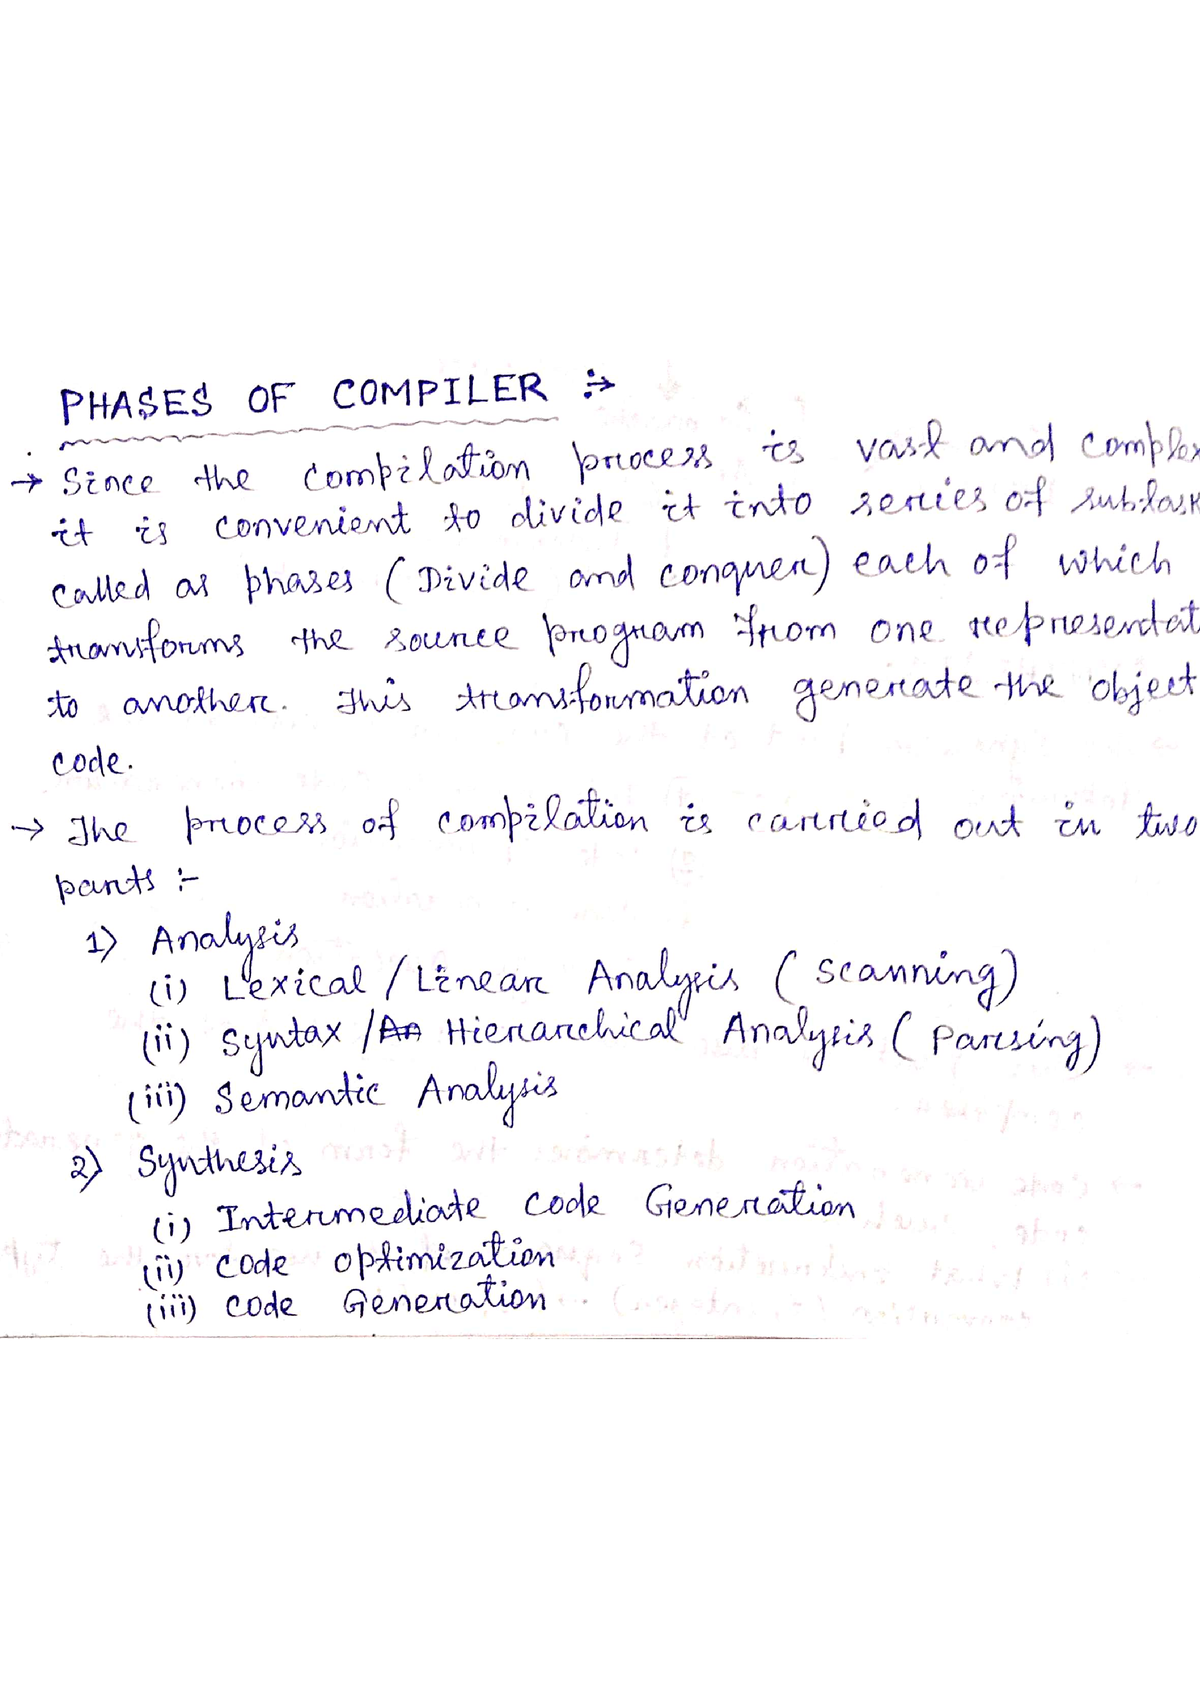 PHASES OF COMPILER :→
→ Since the compilation process is vast and complex
it is convenient to divide it into series of subtask
called as phases (Divide and conquer) each of which
transforms the source program from one representat
to another. This transformation generate the object
code.
→ The process of compilation is carried out in two
parts :-
1) Analysis
(i) Lexical / Linear Analysis ( Scanning)
(ii) Syntax / An Hierarchical Analysis ( Parsing)
(iii) Semantic Analysis
2) Synthesis
(i) Intermediate Code Generation
(ii) Code optimization
(iii) Code Generation